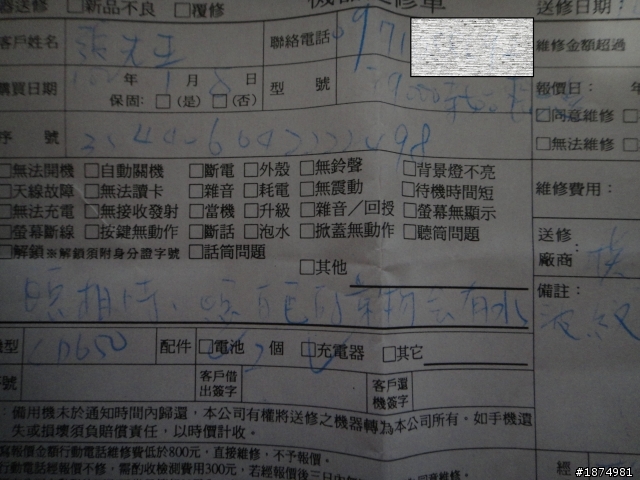 器送修 □新品不良 □覆修 機器送修單 送修日期:
客戶姓名 張先生 聯絡電話 0971 維修金額超過
購買日期 年 月 日 型 號 報價日: 年
保固: □(是) □(否) □同意維修
序 號 □無法維修
□無法開機 □自動關機 □斷電 □外殼 □無鈴聲 □背景燈不亮
□天線故障 □無法讀卡 □雜音 □耗電 □無震動 □待機時間短 維修費用:
□無法充電 □無接收發射 □當機 □升級 □雜音/回授 □螢幕無顯示
□螢幕斷線 □按鍵無動作 □斷話 □泡水 □掀蓋無動作 □聽筒問題 送修
□解鎖※解鎖須附身分證字號 □話筒問題 廠商:
□其他
照相時、照 的東西會有水 備註:
波紋
機型 配件 □電池 2個 □充電器 □其它
序號 客戶借出簽字 客戶還機簽字
:備用機未於通知時間內歸還,本公司有權將送修之機器轉為本公司所有。如手機遺
失或損壞須負賠償責任,以時價計收。
寫報價金額行動電話維修費低於800元,直接維修,不予報價。
行動電話經報價不修,需酌收檢測費用300元,若經報價後三日內 經